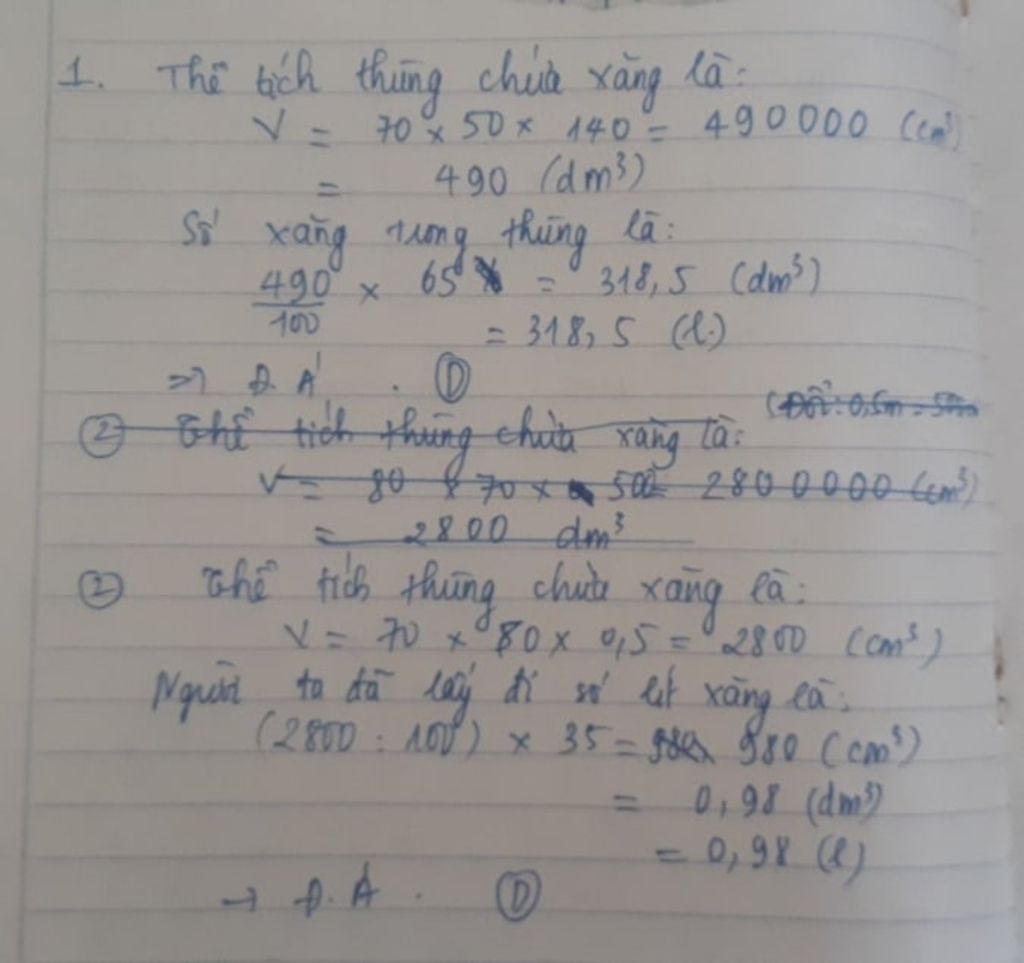 1. Thể tích thùng chứa xăng là:
V = 70 x 50 x 140 = 490000 (cm³)
= 490 (dm³)
Số xăng trong thùng là:
490/100 x 65 = 318,5 (dm³)
= 318,5 (l)
=> Đ. Á. D
(Đổi: 0,5m = 50m
② Thể tích thùng chứa xăng là:
V = 80 x 70 x 500 = 2800000 (cm³)
= 2800 dm³
② Thể tích thùng chứa xăng là:
V = 70 x 80 x 0,5 = 2800 (cm³)
Người ta đã lấy đi số lít xăng là:
(2800 : 100) x 35 = 980 (cm³)
= 0,98 (dm³)
= 0,98 (l)
→ Đ. Á. D